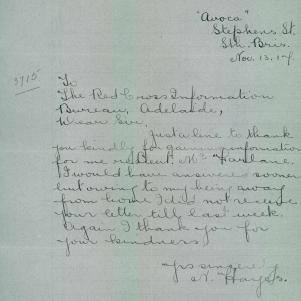 "Avoca"
Stephens St.
Sth. Bris.
Nov. 13. 17.
3715
To
The Red Cross Information
Bureau, Adelaide,
Dear Sir,
Just a line to thank
you kindly for gaining information
for me re Lieut. McFarlane.
I would have answered sooner
but owing to my being away
from home I did not receive
your letter till last week.
Again I thank you for
your kindness,
yrs sincerely
Hayes.